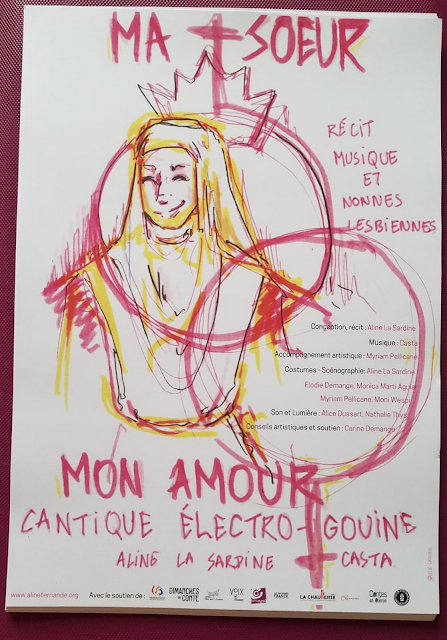 MA SOEUR
RÉCIT
MUSIQUE
ET
NONNES
LESBIENNES
Conception, récit : Aline La Sardine
Musique : Casta
Accompagnement artistique : Myriam Pellicane
Costumes - Scénographie: Aline La Sardine
Elodie Demange, Monica Marti
Myriam Pellicane, Moni Wespi
Son et Lumière : Alice Dussart, Nathalie Thys
Conseils artistiques et soutien : Carine Demange
MON AMOUR
CANTIQUE ÉLECTRO-GOUINE
ALINE LA SARDINE CASTA
www.alinefernande.org Avec le soutien de : DIMANCHES DU CONTE VOIX LA CHAUFFERIE